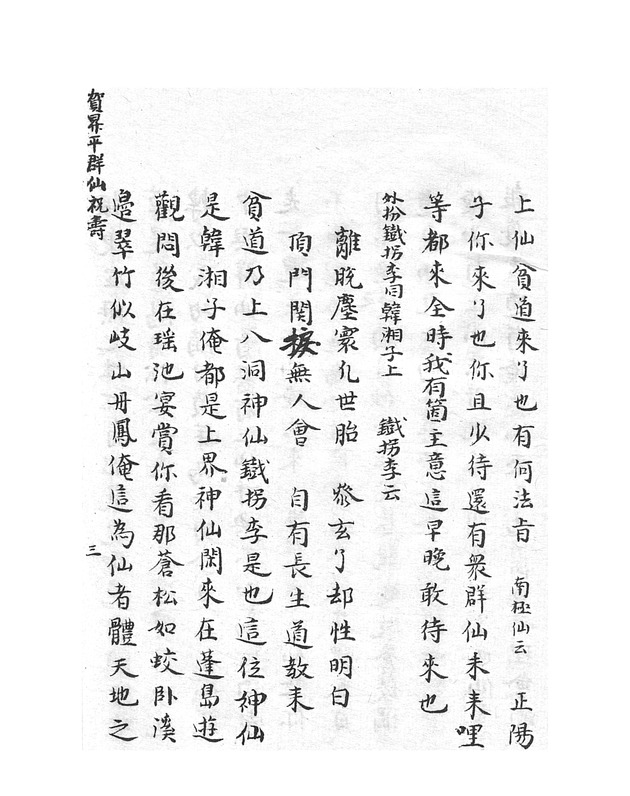 上仙貧道來了也有何法旨　南極仙云　正陽
子你來了也你且少待還有衆群仙未來哩
等都來全時我有箇主意這早晚敢待來也
外扮鐵拐李同韓湘子上　鐵拐李云
離脫塵寰凡世胎　參玄了却性明白
頂門関捩無人會　自有長生道教来
貧道乃上八洞神仙鐵拐李是也這位神仙
是韓湘子俺都是上界神仙閑來在蓬島遊
觀悶後在瑶池宴賞你看那蒼松如蛟卧溪
邊翠竹似岐山丹鳳俺這為仙者體天地之
賀昇平群仙祝壽
三